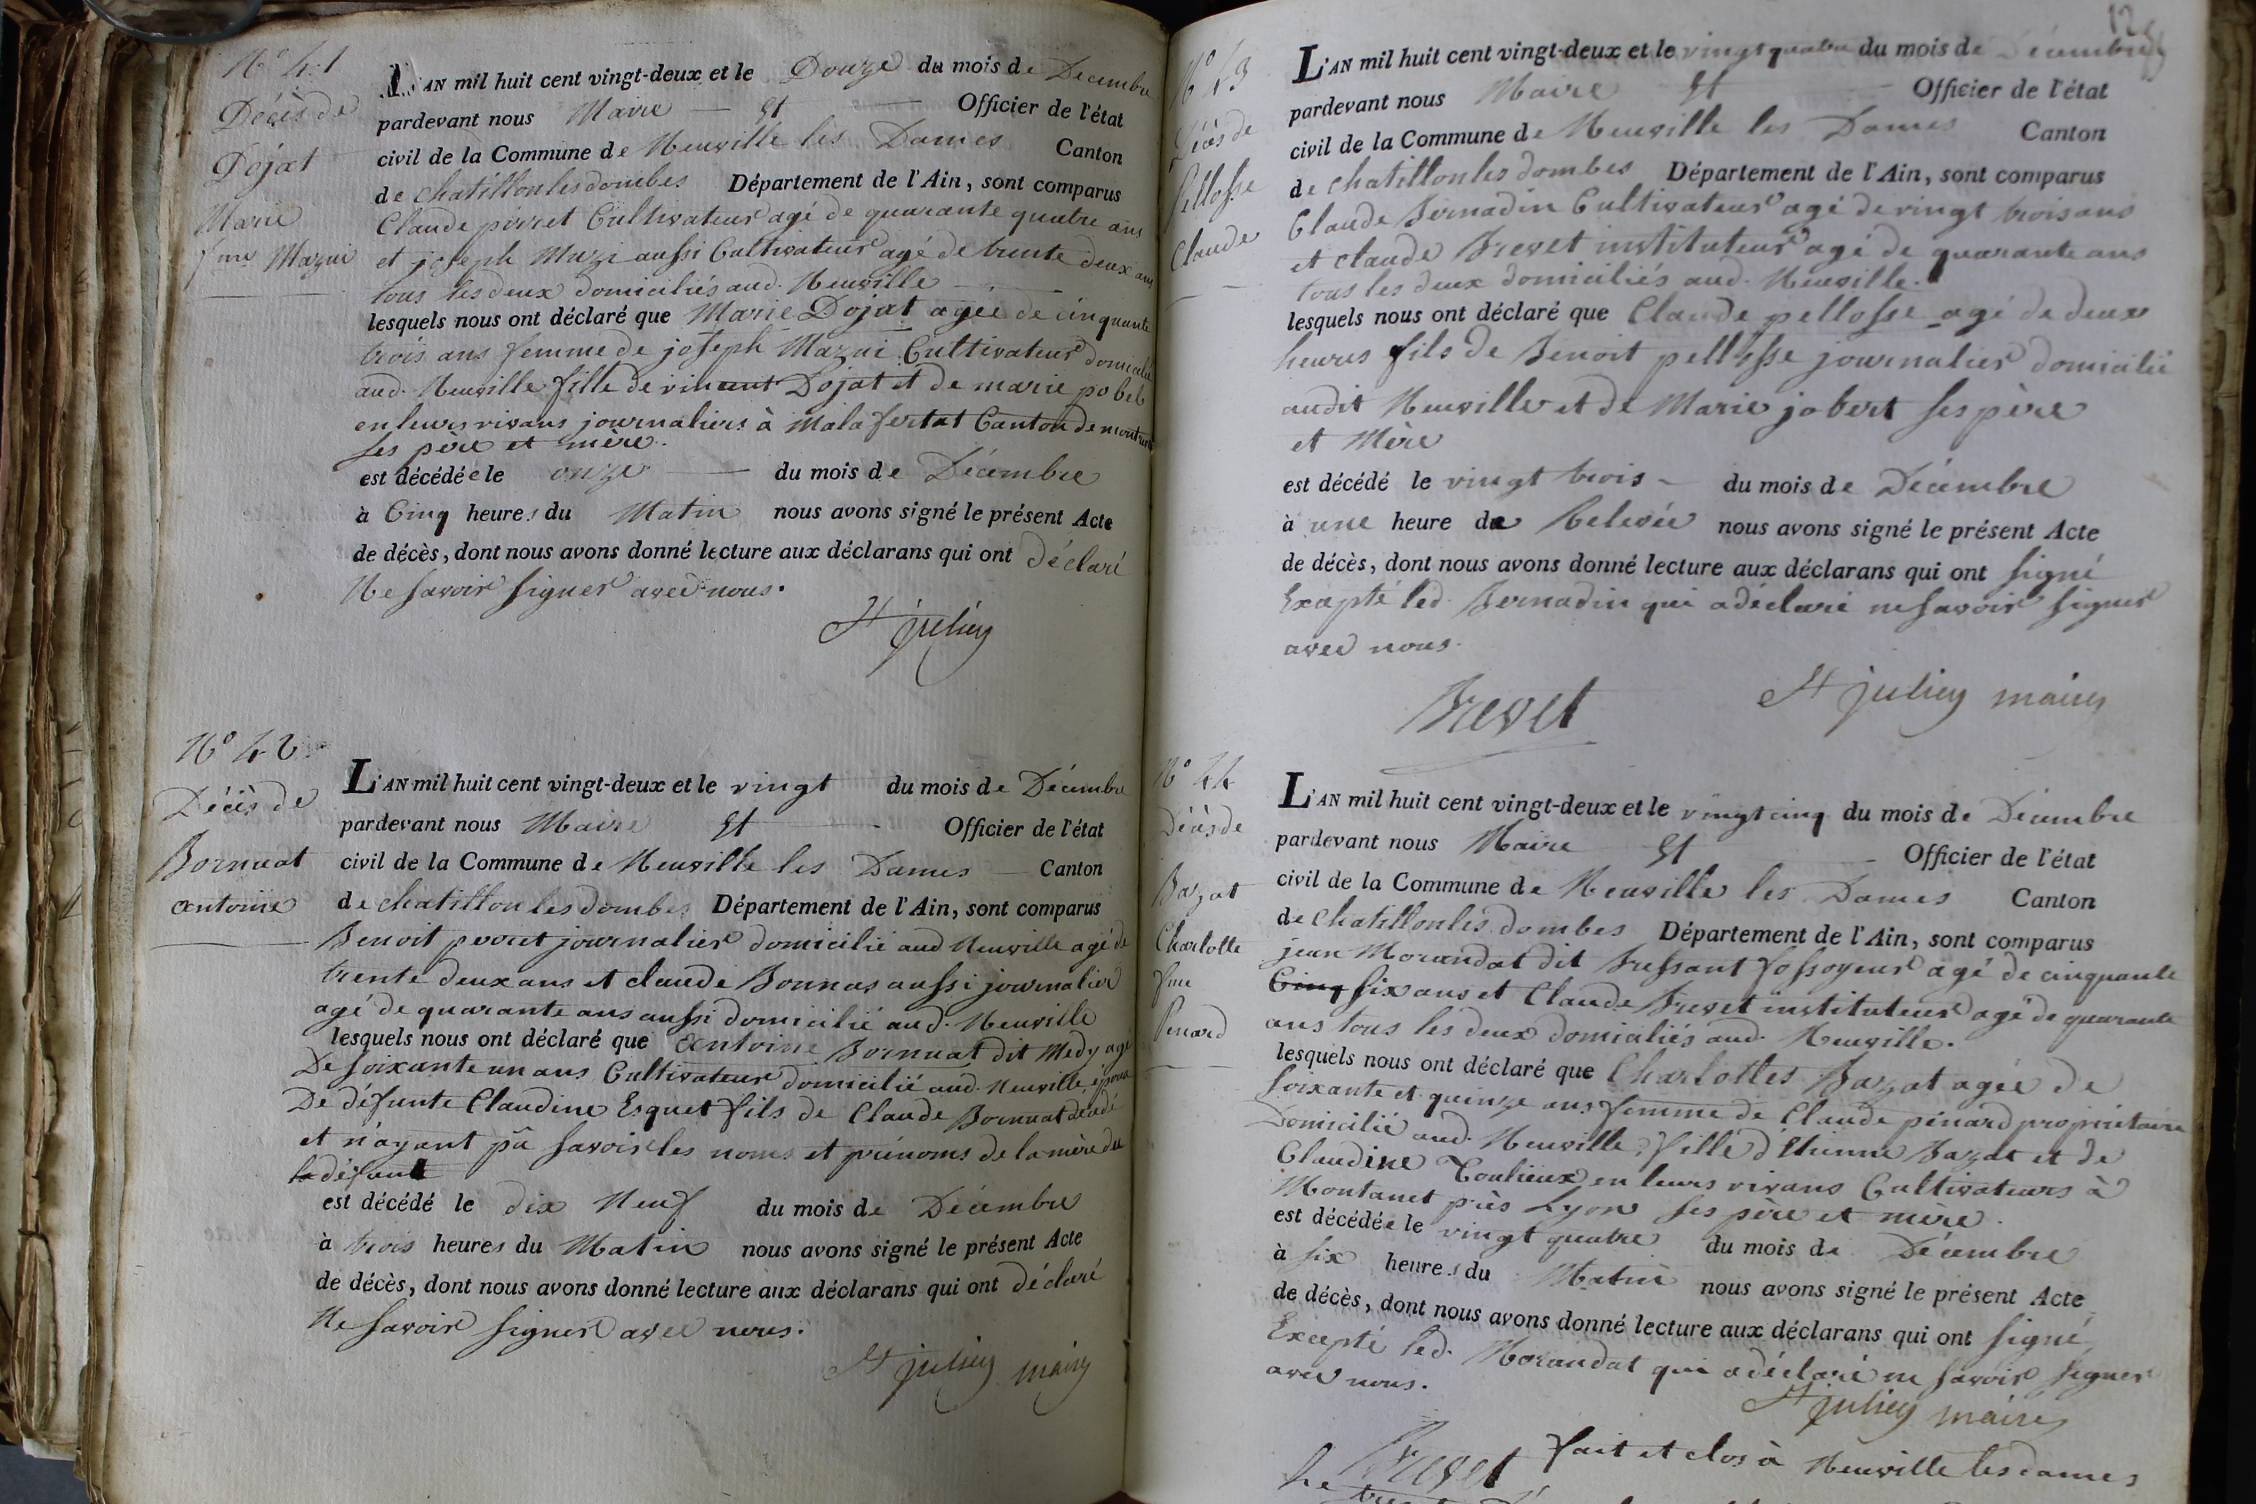 N° 41
Décès de
Dojat
Marie
fme Mazui
L'AN mil huit cent vingt-deux et le Douze du mois de Decembre
pardevant nous Maire et Officier de l'état
civil de la Commune de Neuville les Dames Canton
de chatillon les dombes Département de l'Ain, sont comparus
Claude perret Cultivateur agé de quarante quatre ans
et joseph Muzi aussi Cultivateur agé de trente deux ans
tous les deux domiciliés aud. Neuville
lesquels nous ont déclaré que Marie Dojat agée de cinquante
trois ans femme de joseph Mazui Cultivateur domicilié
aud. Neuville fille de vincent Dojat et de marie pobel
en leurs vivans journaliers à Malafertat Canton de
ses père et mère.
est décédée le onze du mois de Décembre
à Cinq heures du Matin nous avons signé le présent Acte
de décès, dont nous avons donné lecture aux déclarans qui ont déclaré
Ne savoir signer avec nous.
St julien
N° 42
Décès de
Bornuat
antoine
L'AN mil huit cent vingt-deux et le vingt du mois de Décembre
pardevant nous Maire et Officier de l'état
civil de la Commune de Neuville les Dames Canton
de chatillon les dombes Département de l'Ain, sont comparus
Benoit perret journalier domicilié aud Neuville agé de
trente deux ans et claude Bonnas aussi journalier
agé de quarante ans aussi domicilié aud. Neuville
lesquels nous ont déclaré que antoine Bornuat dit Medy agé
De soixante un ans Cultivateur domicilié aud. Neuville époux
De défunte Claudine Esquet fils de Claude Bornuat décédé
et n'ayant pû savoir les noms et prénoms de la mère du
la défunt
est décédé le dix Neuf du mois de Décembre
à trois heures du Matin nous avons signé le présent Acte
de décès, dont nous avons donné lecture aux déclarans qui ont déclaré
Ne savoir signer avec nous.
St julien maire
N° 43
Décès de
Pellosse
Claude
L'AN mil huit cent vingt-deux et le vingt quatre du mois de Décembre
pardevant nous Maire et Officier de l'état
civil de la Commune de Neuville les Dames Canton
de chatillon les dombes Département de l'Ain, sont comparus
Claude Bernadin Cultivateur agé de vingt trois ans
et claude Brevet instituteur agé de quarante ans
tous les deux domiciliés aud. Neuville.
lesquels nous ont déclaré que Claude pellosse agé de deux
heures fils de Benoit pellosse journalier domicilié
audit Neuville et de Marie jobert ses père
et Mère
est décédé le vingt trois du mois de Décembre
à une heure de Relevée nous avons signé le présent Acte
de décès, dont nous avons donné lecture aux déclarans qui ont signé
Excepté led. Bernadin qui a déclaré ne savoir signer
avec nous.
Brevet St julien maire
N° 44
Décès de
Bazat
Charlotte
fme
Penard
L'AN mil huit cent vingt-deux et le vingt cinq du mois de Décembre
pardevant nous Maire et Officier de l'état
civil de la Commune de Neuville les Dames Canton
de chatillon les dombes Département de l'Ain, sont comparus
jean Morandat dit Bressant fossoyeur agé de cinquante
Cinq six ans et Claude Brevet instituteur agé de quarante
ans tous les deux domiciliés aud. Neuville.
lesquels nous ont déclaré que Charlottes Bazat agée de
soixante et quinze ans femme de Claude pénard propriétaire
Domicilié aud. Neuville, fille d'Etienne Bazat et de
Claudine Toulieux en leurs vivans Cultivateurs à
Montanet près Lyon ses père et mère.
est décédée le vingt quatre du mois de Décembre
à six heures du Matin nous avons signé le présent Acte
de décès, dont nous avons donné lecture aux déclarans qui ont signé
Excepté led. Morandat qui a déclaré ne savoir signer
avec nous.
St julien maire
Brevet fait et clos à Neuville les dames